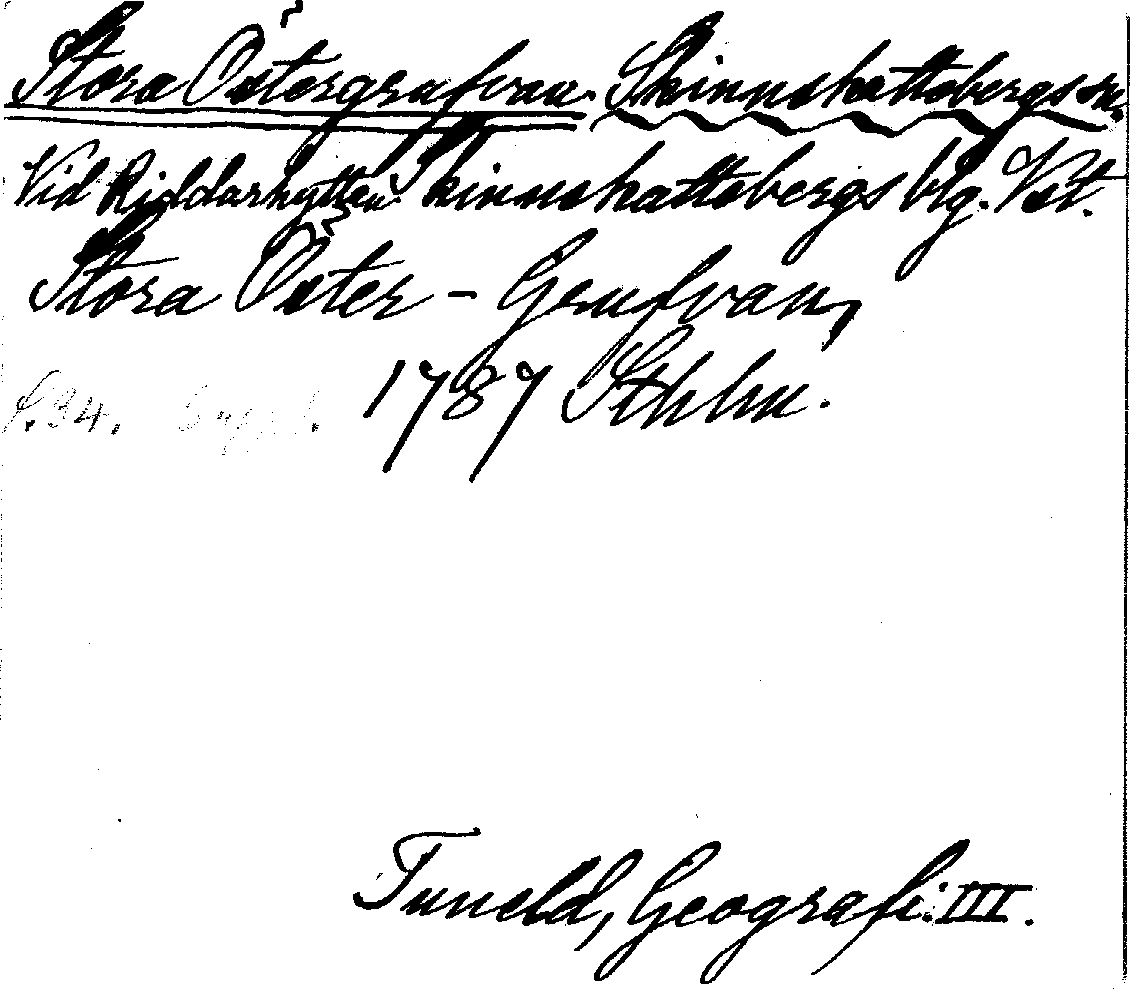 Stora Östergrufvan. Skinnskattebergs sn.
Vid Riddarhyttan Skinnskattebergs blg. Vst.
Stora Öster - Grufvan,
s.34. 1787 Sthlm.
Tuneld, Geografi. III.